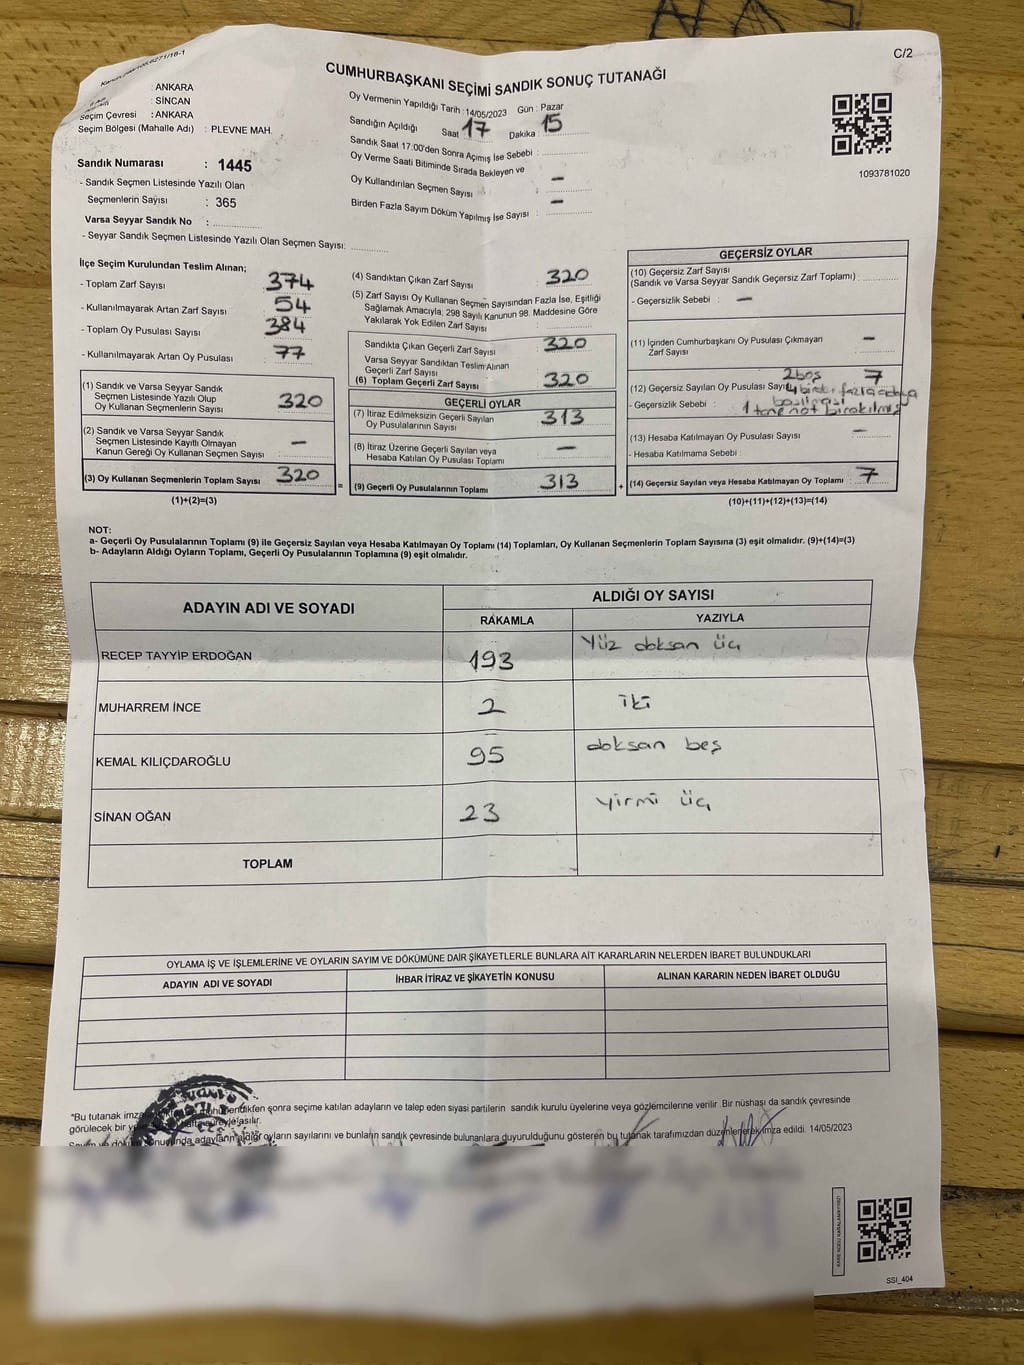 C/2
CUMHURBAŞKANI SEÇİMİ SANDIK SONUÇ TUTANAĞI
: ANKARA
: SİNCAN
Seçim Çevresi : ANKARA
Seçim Bölgesi (Mahalle Adı) : PLEVNE MAH.
Sandık Numarası : 1445
- Sandık Seçmen Listesinde Yazılı Olan
Seçmenlerin Sayısı : 365
Varsa Seyyar Sandık No :
- Seyyar Sandık Seçmen Listesinde Yazılı Olan Seçmen Sayısı:
Oy Vermenin Yapıldığı Tarih : 14/05/2023 Gün : Pazar
Sandığın Açıldığı Saat 17 Dakika 15
Sandık Saat 17.00'den Sonra Açımış İse Sebebi :
Oy Verme Saati Bitiminde Sırada Bekleyen ve
Oy Kullandırılan Seçmen Sayısı : –
Birden Fazla Sayım Döküm Yapılmış İse Sayısı : –
1093781020
İlçe Seçim Kurulundan Teslim Alınan;
- Toplam Zarf Sayısı 374
- Kullanılmayarak Artan Zarf Sayısı 54
- Toplam Oy Pusulası Sayısı 384
- Kullanılmayarak Artan Oy Pusulası 77
(1) Sandık ve Varsa Seyyar Sandık
Seçmen Listesinde Yazılı Olup
Oy Kullanan Seçmenlerin Sayısı 320
(2) Sandık ve Varsa Seyyar Sandık
Seçmen Listesinde Kayıtlı Olmayan
Kanun Gereği Oy Kullanan Seçmen Sayısı –
(3) Oy Kullanan Seçmenlerin Toplam Sayısı 320
(1)+(2)=(3)
=
(4) Sandıktan Çıkan Zarf Sayısı 320
(5) Zarf Sayısı Oy Kullanan Seçmen Sayısından Fazla İse, Eşitliği
Sağlamak Amacıyla, 298 Sayılı Kanunun 98. Maddesine Göre
Yakılarak Yok Edilen Zarf Sayısı :
Sandıkta Çıkan Geçerli Zarf Sayısı 320
Varsa Seyyar Sandıktan Teslim Alınan
Geçerli Zarf Sayısı
(6) Toplam Geçerli Zarf Sayısı 320
GEÇERLİ OYLAR
(7) İtiraz Edilmeksizin Geçerli Sayılan
Oy Pusulalarının Sayısı 313
(8) İtiraz Üzerine Geçerli Sayılan veya
Hesaba Katılan Oy Pusulası Toplamı –
(9) Geçerli Oy Pusulalarının Toplamı 313
+
GEÇERSİZ OYLAR
(10) Geçersiz Zarf Sayısı
(Sandık ve Varsa Seyyar Sandık Geçersiz Zarf Toplamı) :
- Geçersizlik Sebebi : –
(11) İçinden Cumhurbaşkanı Oy Pusulası Çıkmayan
Zarf Sayısı –
2 boş 7
(12) Geçersiz Sayılan Oy Pusulası Sayısı
- Geçersizlik Sebebi :
1 tane not bırakılmış
(13) Hesaba Katılmayan Oy Pusulası Sayısı –
- Hesaba Katılmama Sebebi
(14) Geçersiz Sayılan veya Hesaba Katılmayan Oy Toplamı : 7
(10)+(11)+(12)+(13)=(14)
NOT:
a- Geçerli Oy Pusulalarının Toplamı (9) ile Geçersiz Sayılan veya Hesaba Katılmayan Oy Toplamı (14) Toplamları, Oy Kullanan Seçmenlerin Toplam Sayısına (3) eşit olmalıdır. (9)+(14)=(3)
b- Adayların Aldığı Oyların Toplamı, Geçerli Oy Pusulalarının Toplamına (9) eşit olmalıdır.
ADAYIN ADI VE SOYADI ALDIĞI OY SAYISI
RAKAMLA YAZIYLA
RECEP TAYYİP ERDOĞAN 193 Yüz doksan üç
MUHARREM İNCE 2 iki
KEMAL KILIÇDAROĞLU 95 doksan beş
SİNAN OĞAN 23 yirmi üç
TOPLAM
OYLAMA İŞ VE İŞLEMLERİNE VE OYLARIN SAYIM VE DÖKÜMÜNE DAİR ŞİKAYETLERLE BUNLARA AİT KARARLARIN NELERDEN İBARET BULUNDUKLARI
ADAYIN ADI VE SOYADI İHBAR İTİRAZ VE ŞİKAYETİN KONUSU ALINAN KARARIN NEDEN İBARET OLDUĞU
*Bu tutanak sonra seçime katılan adayların ve talep eden siyasi partilerin sandık kurulu üyelerine veya gözlemcilerine verilir. Bir nüshası da sandık çevresinde
görülecek bir asılır.
adayların aldığı oyların sayılarını ve bunların sandık çevresinde bulunanlara duyurulduğunu gösteren bu tutanak tarafımızdan düzenlenerek imza edildi. 14/05/2023
SSI_404